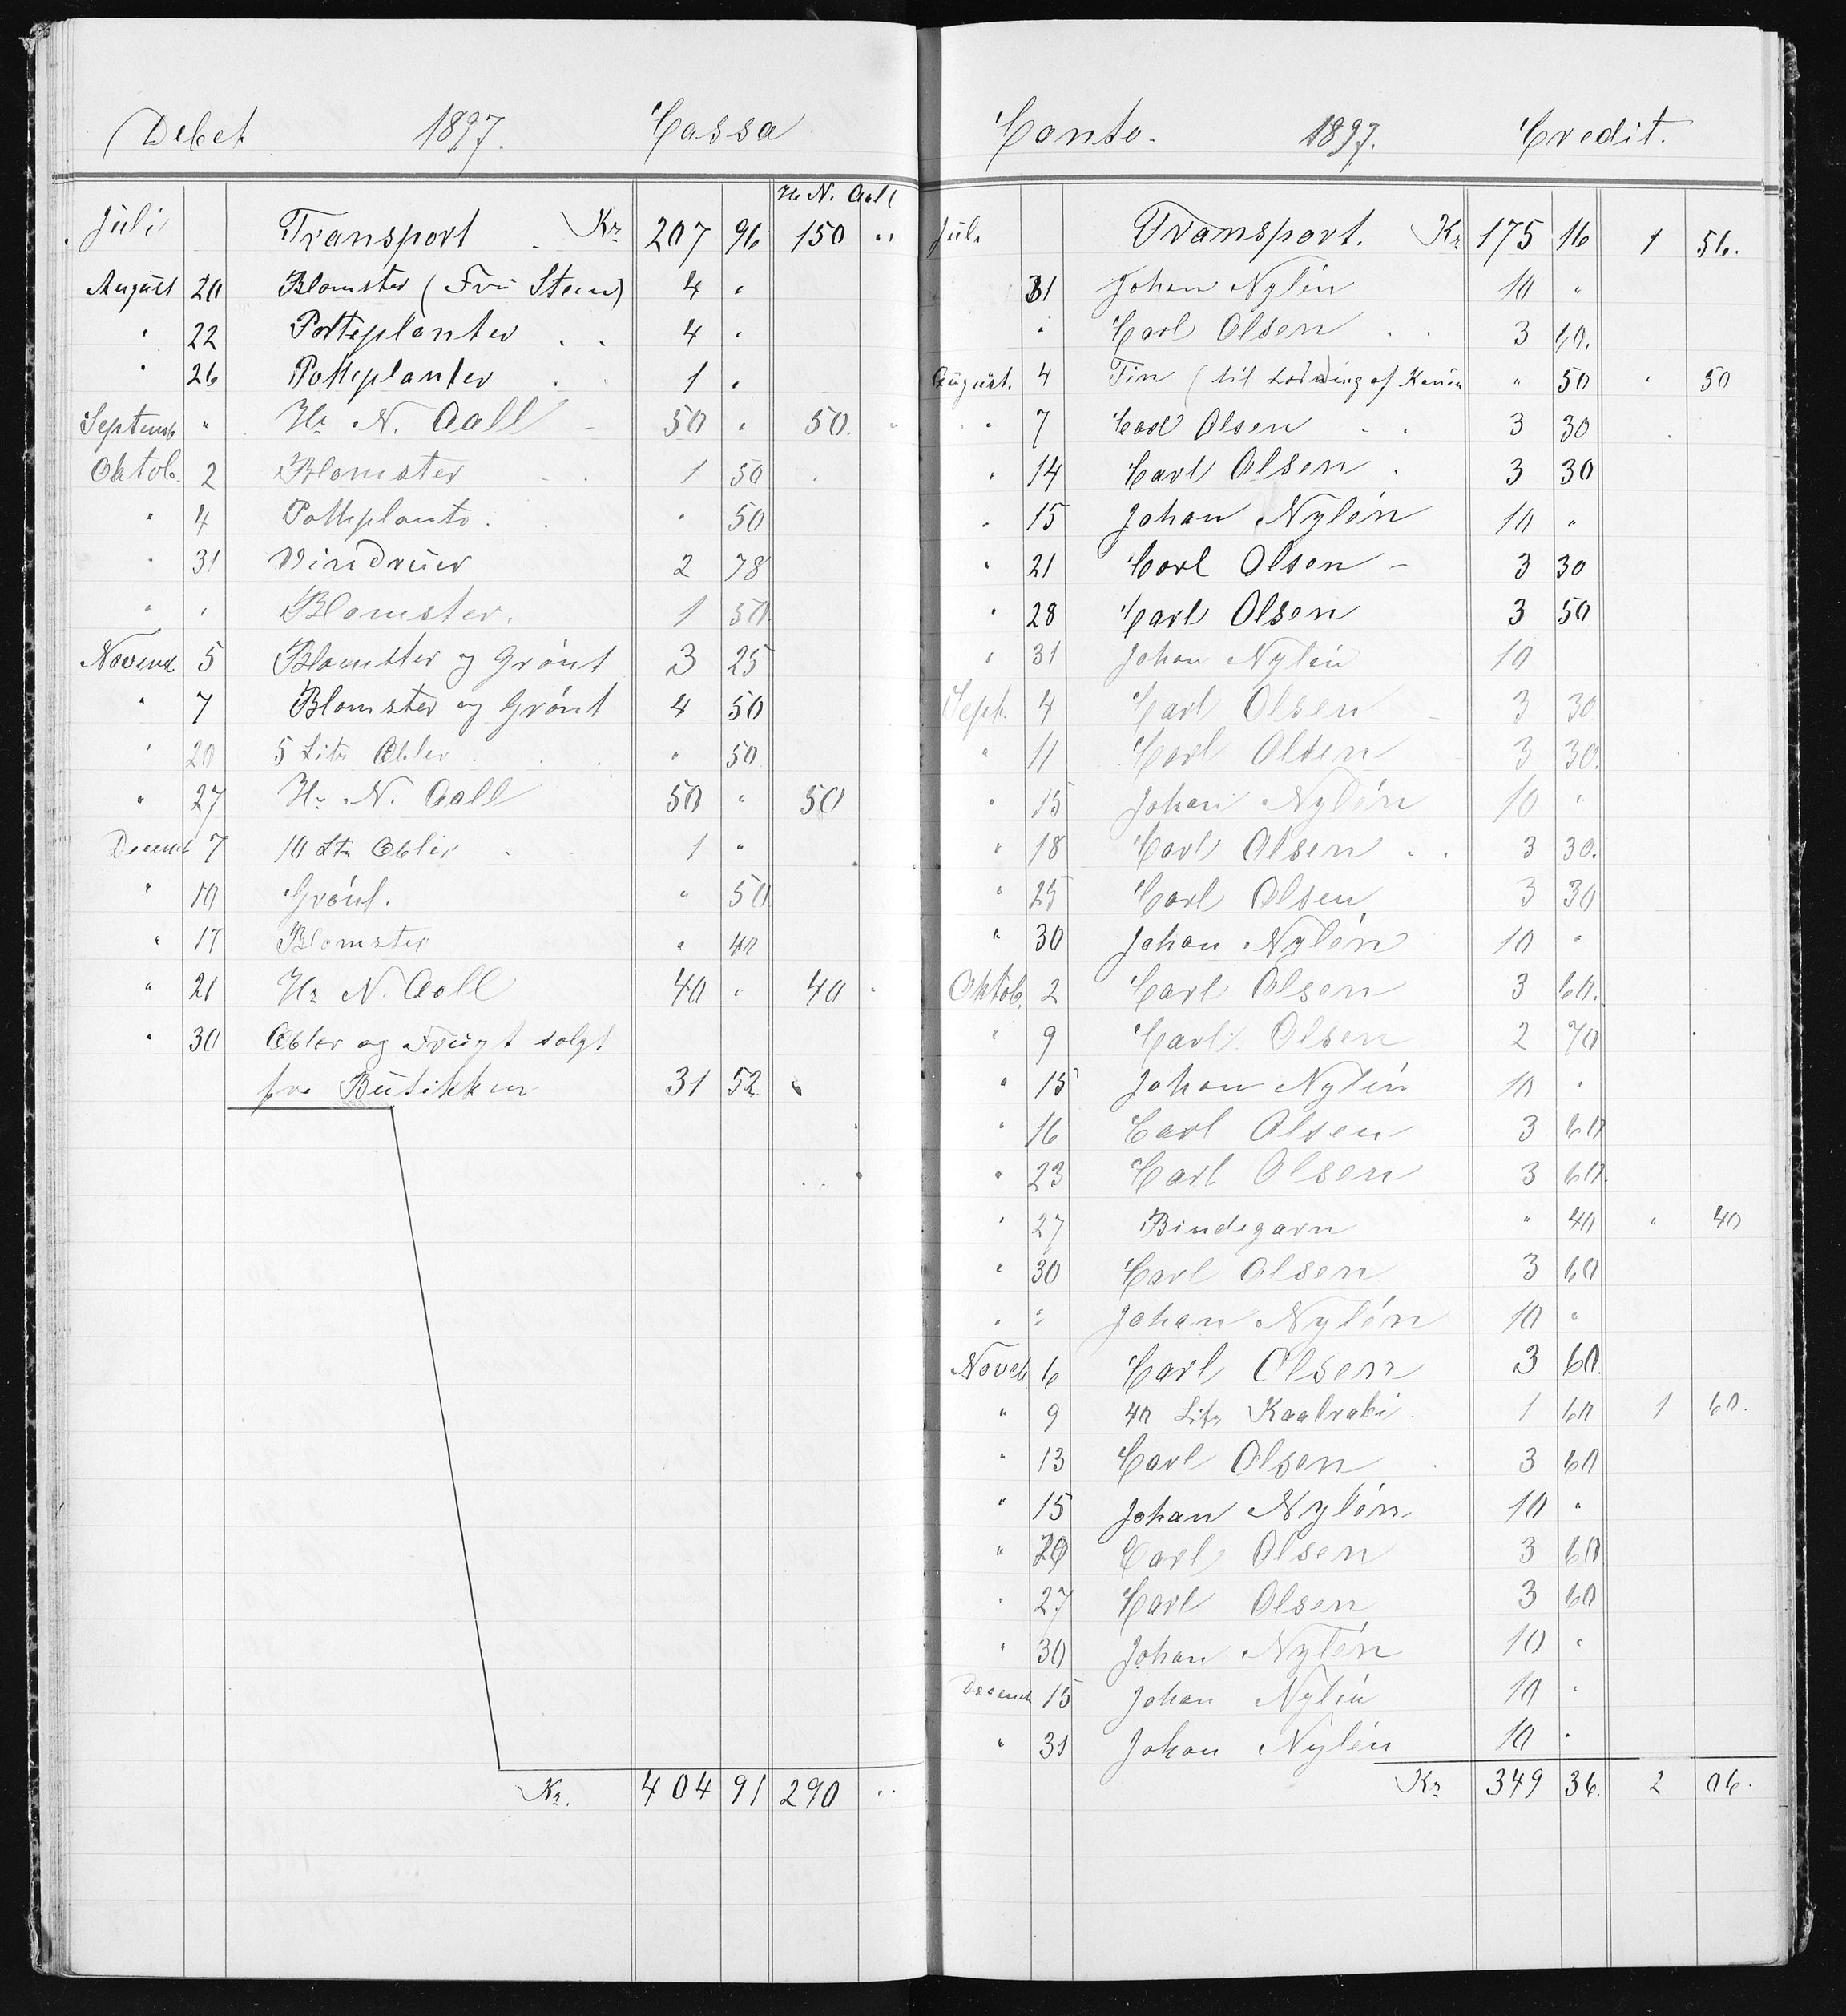 Debet 1897. Cassa
Hr N. Aall
Juli Transport . Kr 207 96 150 "
August 20 Blomster (Fru Steen) 4 "
" 22 Potteplanter . . 4 "
" 26 Potteplanter . . 1 "
Septemb " Hr N. Aall - 50 " 50. "
Oktob. 2 Blomster - . 1 50
" 4 Potteplante . . " 50
" 31 Vindruer 2 78
" " Blomster. 1 50
Novemb 5 Blomster og Grønt 3 25
" 7 Blomster og Grønt 4 50
" 20 5 Litr Æbler . . . " 50
" 27 Hr. N. Aall 50 " 50
Decemb 7 10 Ltr Æbler . . 1 "
" 10 Grønt. " 50
" 17 Blomster " 40
" 21 Hr N. Aall 40 " 40 "
" 30 Æbler og Frugt solgt
fra Butikken 31 52 "
Kr. 404 91 290 "
Conto. 1897. Credit.
Juli Transport. Kr 175 16 1 56.
31 Johan Nylén 10 "
" Carl Olsen . . 3 60.
August. 4 Tin (til Lodning af Kanin " 50 " 50
" 7 Carl Olsen . . 3 30
" 14 Carl Olsen . 3 30
" 15 Johan Nylén 10 "
" 21 Carl Olsen - 3 30
" 28 Carl Olsen 3 50
" 31 Johan Nylén 10
Sept. 4 Carl Olsen - 3 30
" 11 Carl Olsen - 3 30.
" 15 Johan Nylén 10 "
" 18 Carl Olsen . . 3 30.
" 25 Carl Olsen 3 30
" 30 Johan Nylén 10 "
Oktob. 2 Carl Olsen 3 60.
" 9 Carl Olsen 2 70
" 15 Johan Nylén 10 "
" 16 Carl Olsen 3 60
" 23 Carl Olsen 3 60.
" 27 Bindegarn " 40 " 40
" 30 Carl Olsen 3 60
" " Johan Nylén 10 "
Noveb. 6 Carl Olsen 3 60.
" 9 40 Litr Kaalrabi . 1 60 1 60.
" 13 Carl Olsen . 3 60
" 15 Johan Nylén 10 "
" 20 Carl Olsen 3 60
" 27 Carl Olsen 3 60
" 30 Johan Nylén 10 "
Decemb 15 Johan Nylén 10 "
" 31 Johan Nylén 10 "
Kr 349 36. 2 06.